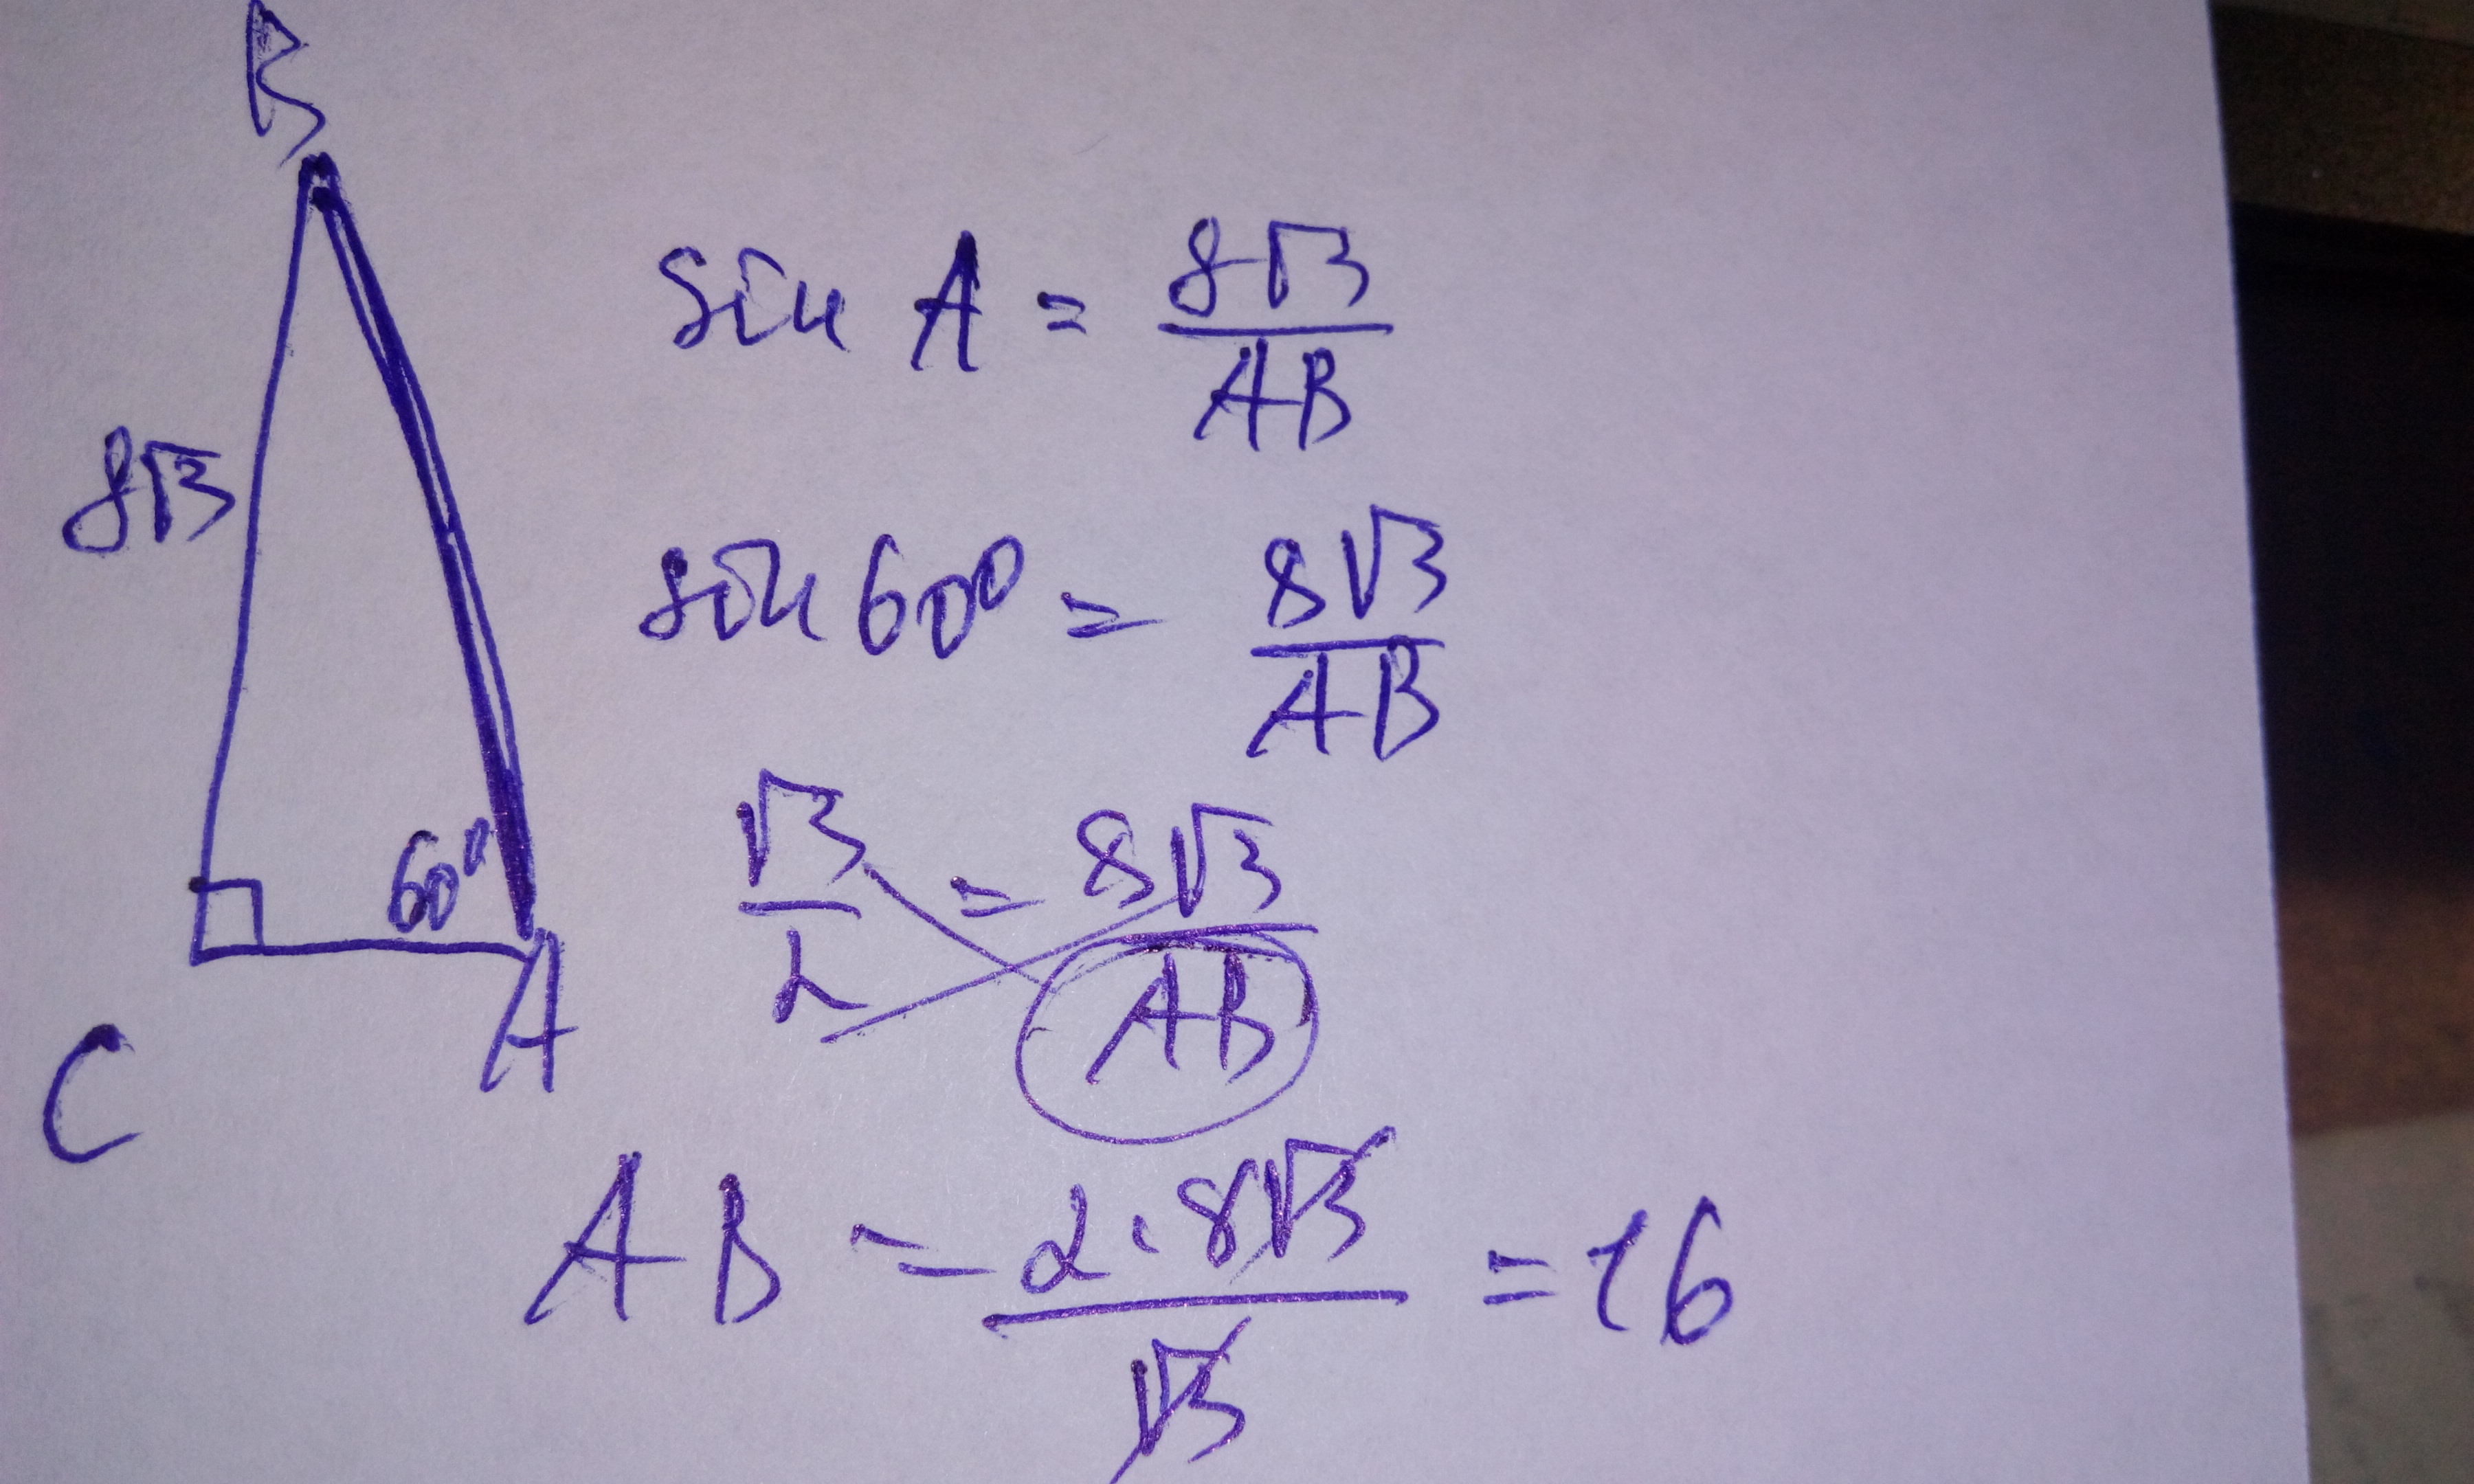 B
8√3
60°
C
A
sin A = 8√3 / AB
sin 60° = 8√3 / AB
√3 / 2 = 8√3 / AB
AB = 2·8√3 / √3 = 16